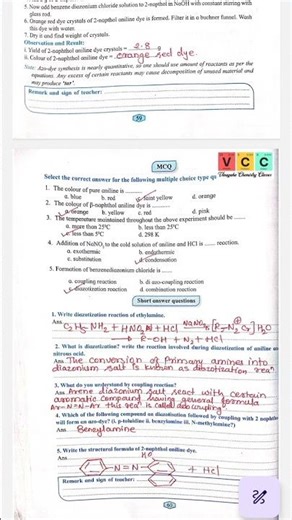 5. Now add benzene diazonium chloride solution to 2-napthol in NaOH with constant stirring with
glass rod.
6. Orange red dye crystals of 2-napthol aniline dye is formed. Filter it in a buchner funnel. Wash
this dye with water.
7. Dry it and find weight of crystals.
Observation and Result:
i. Yield of 2-napthol aniline dye crystals = 2.8 g
ii. Colour of 2-napthol aniline dye = orange red dye.
Note: Azo-dye synthesis is nearly quantitative, so one should use amount of reactants as per the
equations. Any excess of certain reactants may cause decomposition of unused material and
may produce "tar".
Remark and sign of teacher:
59
MCQ
VCC
Select the correct answer for the following multiple choice type qs
1. The colour of pure aniline is ..........
a. blue b. red c. faint yellow d. orange
2. The colour of β-naphthol aniline dye is ..........
a. orange b. yellow c. red d. pink
3. The temperature maintained throughout the above experiment should be ......
a. more than 25°C b. less than 25°C
c. less than 5°C d. 298 K
4. Addition of NaNO₂ to the cold solution of aniline and HCl is ...... reaction.
a. exothermic b. endothermic
c. substitution d. condensation
5. Formation of benzenediazonium chloride is ......
a. coupling reaction b. di azo-coupling reaction
c. diazotization reaction d. combination reaction
Short answer questions
1. Write diazotization reaction of ethylamine.
Ans C₂H₅-NH₂ + HNO₂ + HCl
R-OH + N₂ + HCl
2. What is diazotisation? write the reaction involved during diazotization of aniline
nitrous acid.
Ans The conversion of Primary amines into
diazonium salt is known as diazotisation reaⁿ.
3. What do you understand by coupling reaction?
Ans Arene diazonium salt react with certain
aromatic compound having general formula
Ar-N=N-Ar this reaⁿ is called
4. Which of the following compound on diazotisation followed by coupling with 2 naphtol
will form an azo-dye? (i. p-toluidine ii. benzylamine iii. N-methylamine?)
Ans Benzylamine
5. Write the structural formula of 2-naphthol aniline dye.
Ans
HO
N=N
+ HCl
Remark and sign of teacher:
60